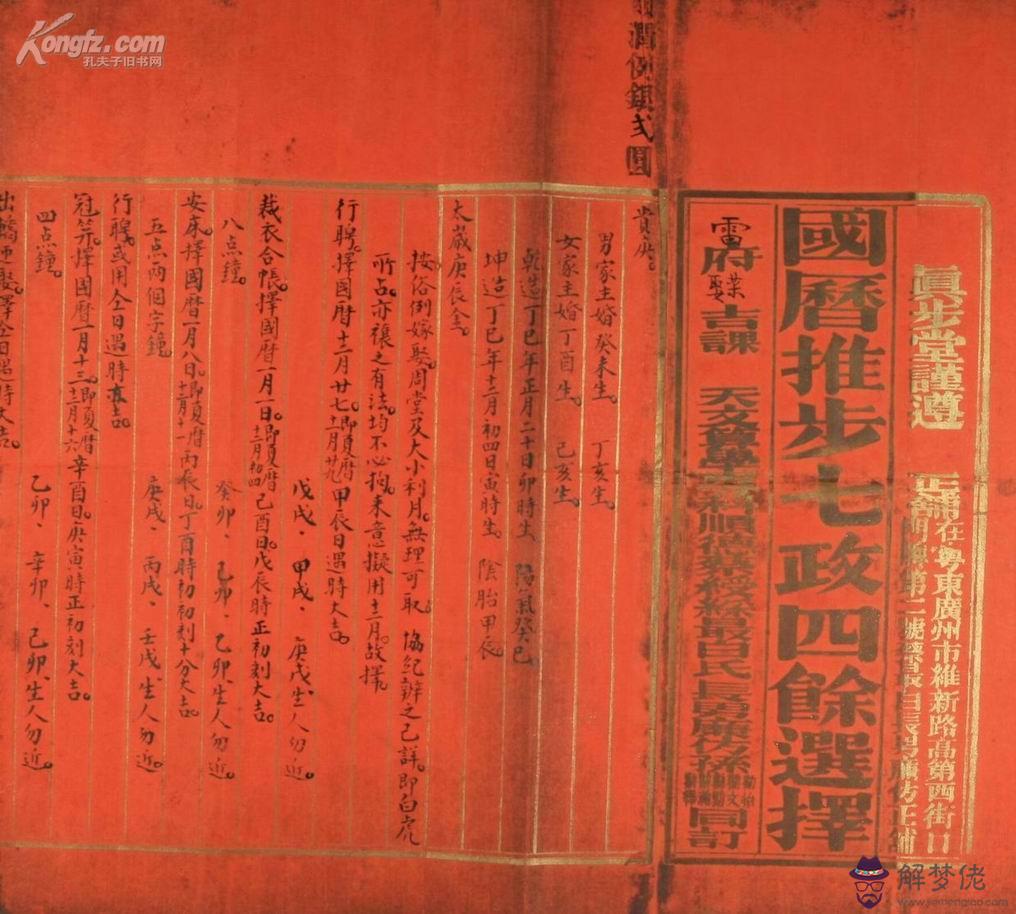 Kongfz.com
孔夫子旧书网
潤例銀弍圓
眞步堂謹遵
正鋪在粵東廣州市維新路高第西街口
國曆推步七政四餘選擇
雷府
吉課
同訂
貴府。
男家主婚癸未生。 丁亥生。
女家主婚丁酉生。 己亥生。
乾造丁巳年正月二十日卯時生 陽氣癸巳
坤造丁巳年十二月初四日寅時生。 陰胎甲辰。
太歲庚辰金。
按俗例嫁娶周堂及大小利月。無理可取。協紀辦之已詳。即白虎
所占。亦禳之有法。均不必拘。來意擬用十二月。故擇。
行聘。擇國曆十二月廿七。即夏曆十一月廿九。甲辰日遇時大吉。
戊戌、甲戌、庚戌生人勿近。
裁衣合帳。擇國曆一月一日。即夏曆十二月初四己酉日。戊辰時正初刻大吉。
八点鐘。 癸卯、己卯、乙卯、生人勿近。
安床擇國曆一月八日。即夏曆十二月十一丙辰日。丁酉時初初刻十分大吉。
五点兩個字鐘。 庚戌、丙戌、壬戌生人勿近。
行聘。或用全日。遇時亦吉。
冠笄。擇國曆一月十三。即夏曆十二月十六。辛酉日。庚寅時正初刻大吉。
四点鐘。 乙卯、辛卯、己卯、生人勿近。
解梦佬
www.jiemenglao.com